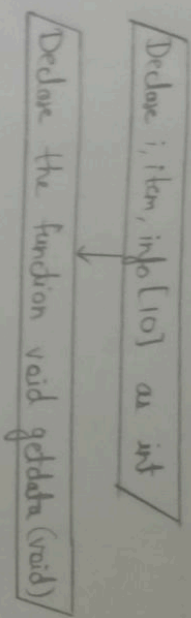 Declare i, item, info[10] as int
Declare the function void getdata(void)